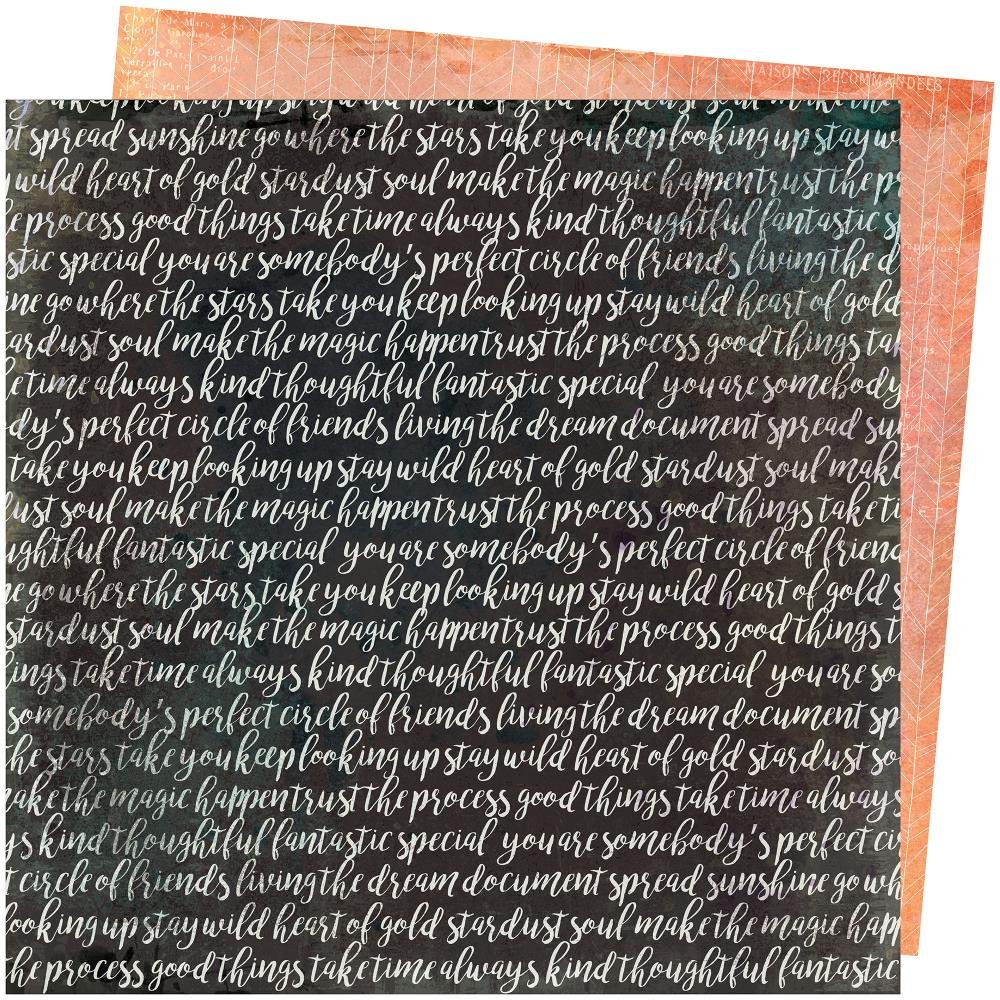 Champ-de-Mars) a Sa
MAISONS RECOMMANDEES
keep looking up stay wild heart of gold stardust soul make the
t spread sunshine go where the stars take you keep looking up stay w
y wild heart of gold stardust soul make the magic happen trust the pr
e process good things take time always kind thoughtful fantastic sp
stic special you are somebody's perfect circle of friends living the d
ine go where the stars take you keep looking up stay wild heart of gold
ardust soul make the magic happen trust the process good things tak
e time always kind thoughtful fantastic special you are somebody
dy's perfect circle of friends living the dream document spread sun
take you keep looking up stay wild heart of gold stardust soul make
dust soul make the magic happen trust the process good things take ti
ughtful fantastic special you are somebody's perfect circle of friend
e go where the stars take you keep looking up stay wild heart of gold s
stardust soul make the magic happen trust the process good things t
ings take time always kind thoughtful fantastic special you are so
somebody's perfect circle of friends living the dream document sp
the stars take you keep looking up stay wild heart of gold stardust so
make the magic happen trust the process good things take time always
ys kind thoughtful fantastic special you are somebody's perfect ci
t circle of friends living the dream document spread sunshine go wh
looking up stay wild heart of gold stardust soul make the magic hap
he process good things take time always kind thoughtful fantastic